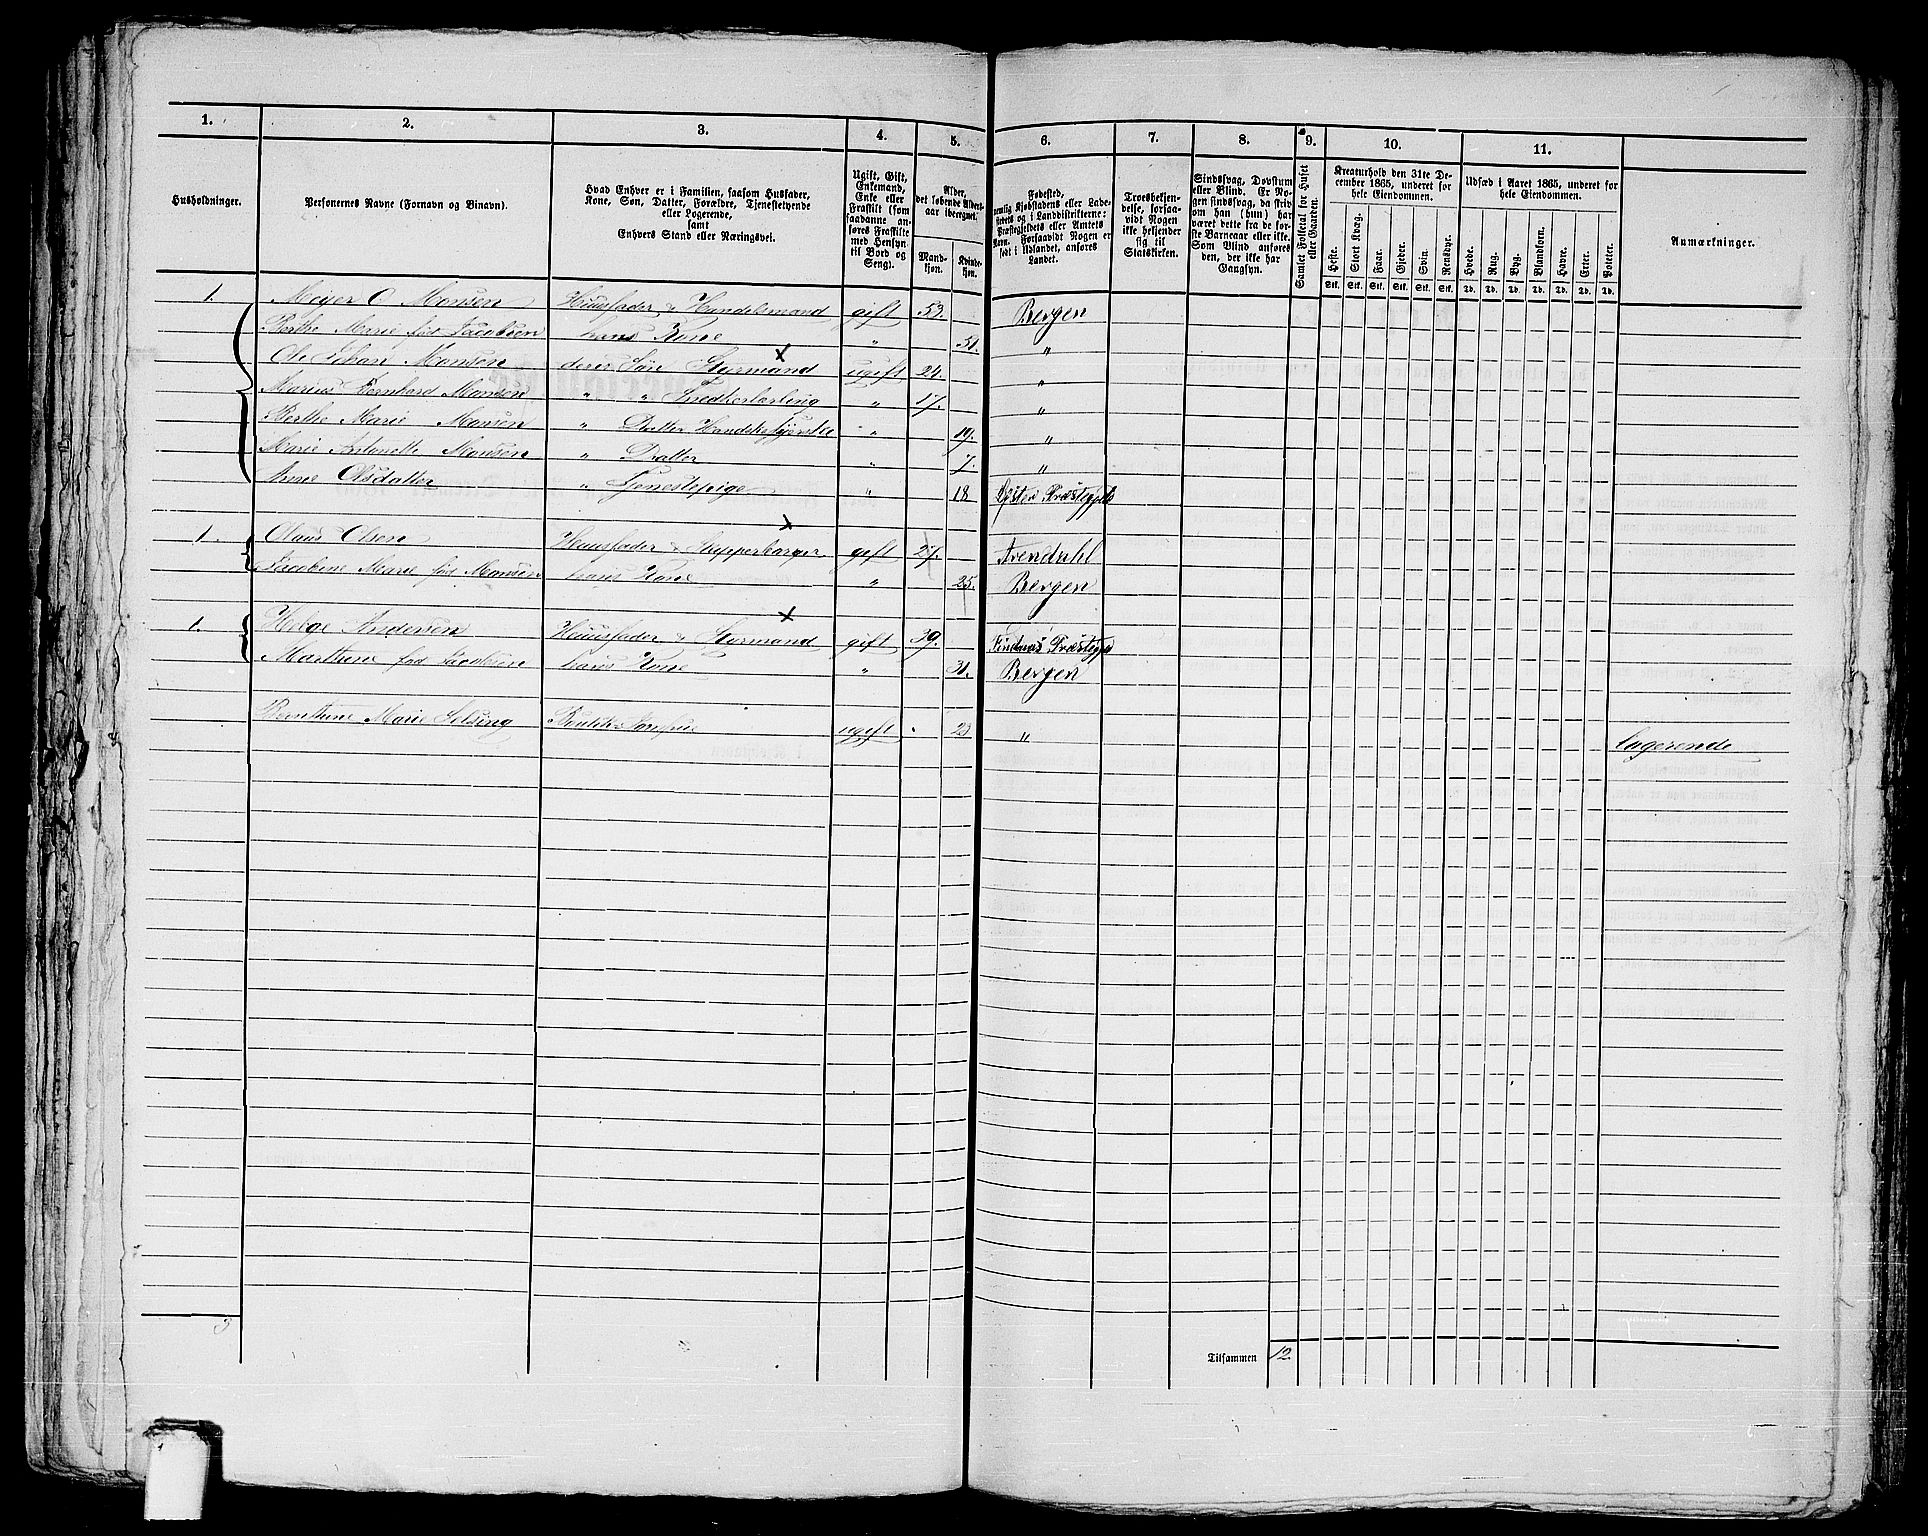 1. 2. 3. 4. 5. 6. 7. 8. 9. 10. 11.
Husholdninger.
Personernes Navne (Fornavn og Binavn).
Hvad Enhver er i Familien, saasom Husfader,
Kone, Søn, Datter, Forældre, Tjenestetyende
eller Logerende,
samt
Enhvers Stand eller Næringsvei.
Ugift, Gift,
Enkemand,
Enke eller
Fraskilt (som
saadanne an-
føres Fraskilte
med Hensyn
til Bord og
Seng).
Alder,
det løbende Alders-
aar iberegnet.
Mand-
kjøn.
Kvinde-
kjøn.
Fødested,
nemlig Kjøbstadens eller Lade-
stedets og i Landdistrikterne:
Præstegjeldets eller Amtets
Navn. Forsaavidt Nogen er
født i Udlandet, anføres
Landet.
Troesbekjen-
delse, forsaa-
vidt Nogen
ikke bekjender
sig til
Statskirken.
Sindssvag, Døvstum
eller Blind. Er No-
gen sindssvag, da skriv
om han (hun) har
været dette fra de før-
ste Barneaar eller ikke.
Som Blind anføres
den, der ikke har
Gangsyn.
Samlet Folketal for Huset
eller Gaarden.
Kreaturhold den 31te De-
cember 1865, underet for
hele Eiendommen.
Heste. Stort Kvæg. Faar. Gjeder. Svin. Rensdyr.
Stk. Stk. Stk. Stk. Stk. Stk.
Udsæd i Aaret 1865, underet for
hele Eiendommen.
Hvede. Rug. Byg. Blandkorn. Havre. Erter. Poteter.
Td. Td. Td. Td. Td. Td. Td.
Anmærkninger.
1. Meyer O. Monsen Huusfader & Handelsmand gift 53. Bergen
Berthe Marie fød Jacobsen hans Kone " 51. "
Ole Johan Monsen deres Søn Styrmand ugift 24. "
Marius Bernhard Monsen " " Snedkerlærling " 17. "
Berthe Marie Monsen " Datter " 19. "
Marie Antonette Monsen " Datter " 7. "
Anne Olsdatter " Tjenestepige " 18
1. Claus Olsen Huusfader & gift 27. Arendahl
Jacobine Marie fød Monsen hans Kone " 25. Bergen
1. Helge Andersen Huusfader & Styrmand gift 39.
Marthine fød Jacobsen hans Kone " 31. Bergen
Marie Selsing ugift 23 " logerende
3
Tilsammen 12.